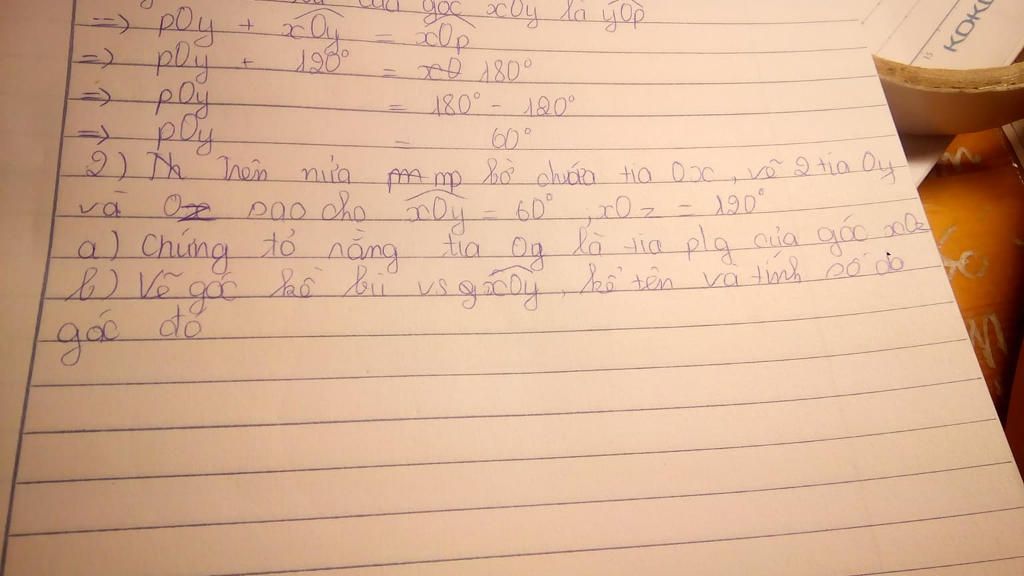 góc xOy là yOp
=> pOy + xOy = xOp
=> pOy + 120° = 180°
=> pOy = 180° - 120°
=> pOy = 60°
2) Trên nửa mp bờ chứa tia Ox, vẽ 2 tia Oy
và Oz sao cho xOy = 60°, xOz = 120°
a) Chứng tỏ rằng tia Oy là tia plg của góc xOz
b) Vẽ góc kề bù vs góc xOy, kể tên và tính số đo
góc đó
KOKU